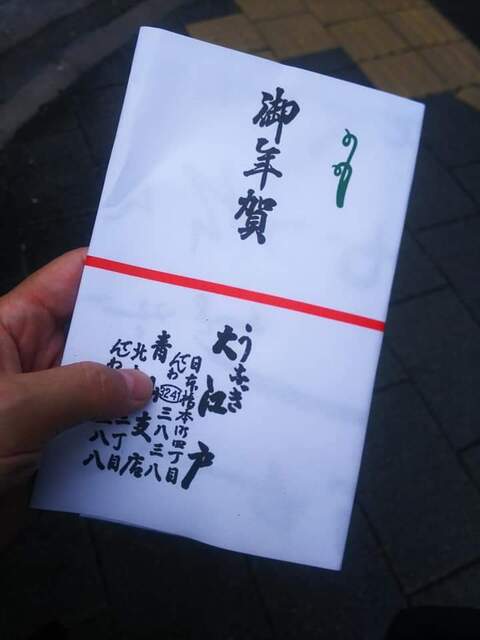 御年賀
のし
うなぎ
大江戸
日本橋本町四丁目
でんわ 3241 三八三八
青 支店
北 三丁目
でんわ 八